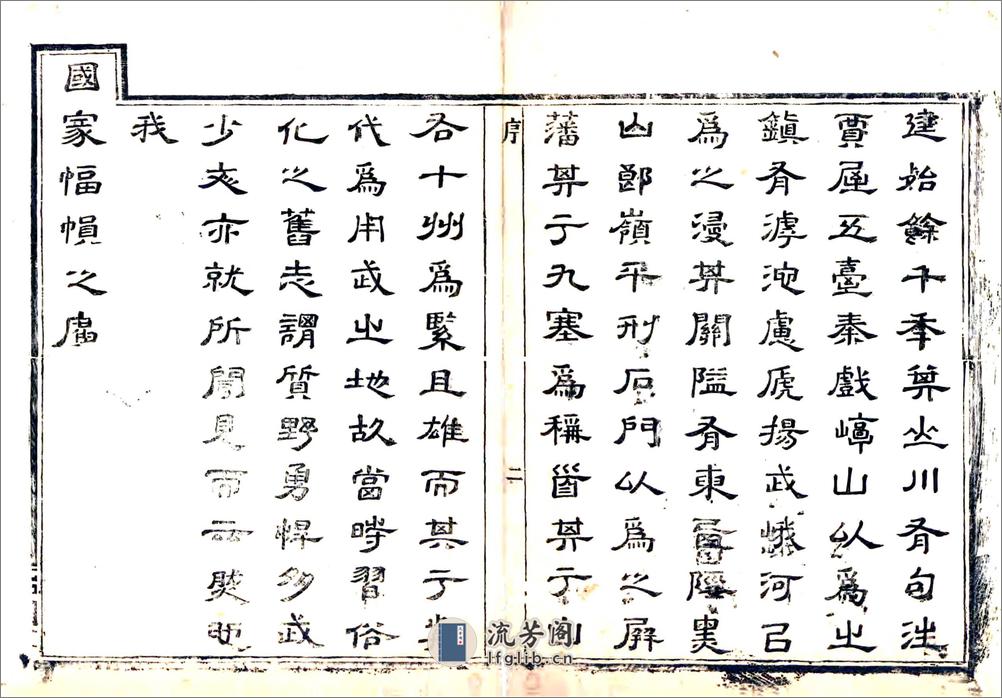 建始餘千年其山川有句注
賈屋五臺秦戲嶂山以為之
鎮有滹沱慮虒揚武峨河以
為之浸其關隘有東西陘
山郎嶺平刑石門以為之屏
藩其于九塞為稱首其于列
序
二
各十州為緊且雄而其于
代為用武之地故當時習俗
化之舊志謂質野勇悍多武
少文亦就所聞見而云然
我
國家幅幀之廣
流芳阁
lfglib.cn